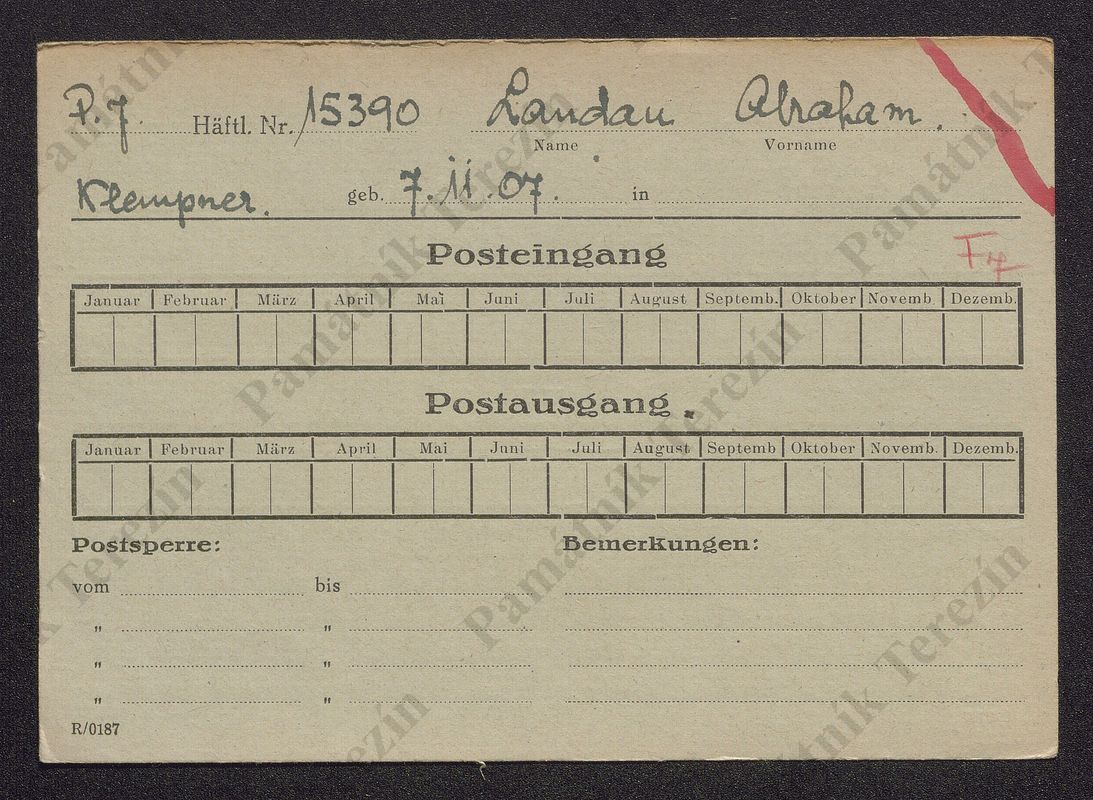 P.J. Häftl. Nr. 15390 Landau Abraham.
Name Vorname
Klempner. geb. 7.11.07. in
Posteingang
Januar Februar März April Mai Juni Juli August Septemb. Oktober Novemb. Dezemb.
Postausgang
Januar Februar März April Mai Juni Juli August Septemb Oktober Novemb. Dezemb.
Postsperre: Bemerkungen:
vom bis
" "
" "
" "
R/0187
Památník Terezín